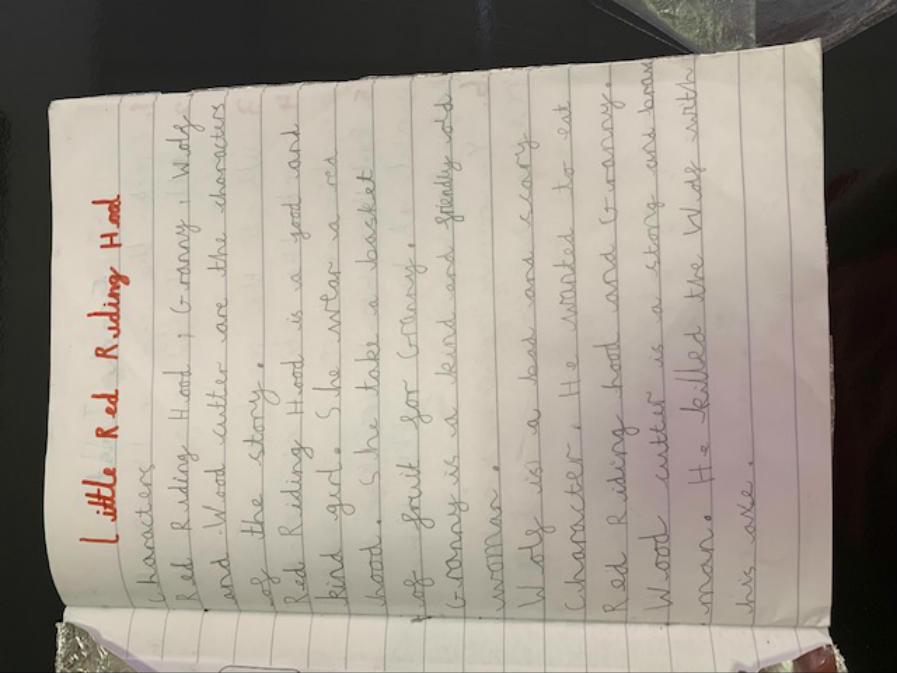 Little Red Riding Hood
Characters
Red Riding Hood, Granny, Wolf
and Wood cutter are the characters
of the story.
Red Riding Hood is a good and
kind girl. She wear a red
hood. She take a basket
of fruit for Granny.
Granny is a kind and friendly old
woman.
Wolf is a bad and scary
Character. He wanted to eat
Red Riding hood and Granny.
Wood cutter is a strong and brav
man. He killed the Wolf with
his axe.